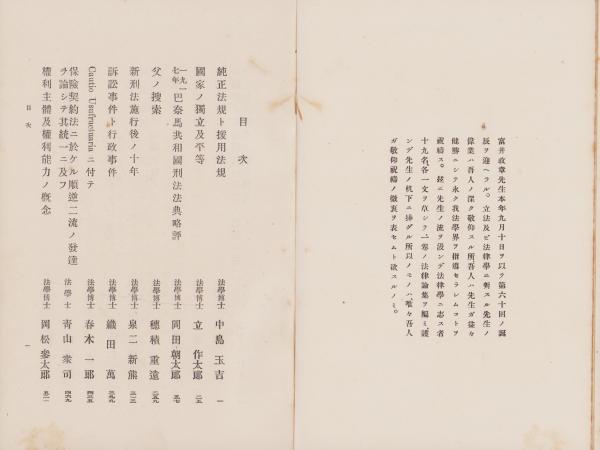 富井政章先生本年九月十日ヲ以テ第六十回ノ誕
辰ヲ迎ヘラル。立法及ビ法律學ニ對スル先生ノ
偉業ハ吾人ノ深ク敬仰スル所、吾人ハ先生ガ益々
健勝ニシテ永ク我法學界ヲ指導セラレムコトヲ
祝禱ス。茲ニ先生ノ流ヲ汲ンデ法律學ニ志ス者
十九名、各一文ヲ草シテ一卷ノ法律論集ヲ編ミ謹
ンデ先生ノ机下ニ捧グル所以ノモノハ、唯々吾人
ガ敬仰祝禱ノ微衷ヲ表セムト欲スルノミ。
目次
純正法規ト援用法規 法學博士 中島玉吉 一
國家ノ獨立及平等 法學博士 立作太郎 二五
一九一七年 巴奈馬共和國刑法法典略評 法學博士 岡田朝太郎 五七
父ノ搜索 法學博士 穗積重遠
新刑法施行後ノ十年 法學博士 泉二新熊
訴訟事件ト行政事件 法學博士 織田萬
Cautio Usufructuaria ニ付テ 法學博士 春木一郎
保險契約法ニ於ケル順逆二流ノ發達
ヲ論シテ其統一ニ及フ 法學士 青山衆司
權利主體及權利能力ノ概念 法學博士 岡松參太郎
目次
一